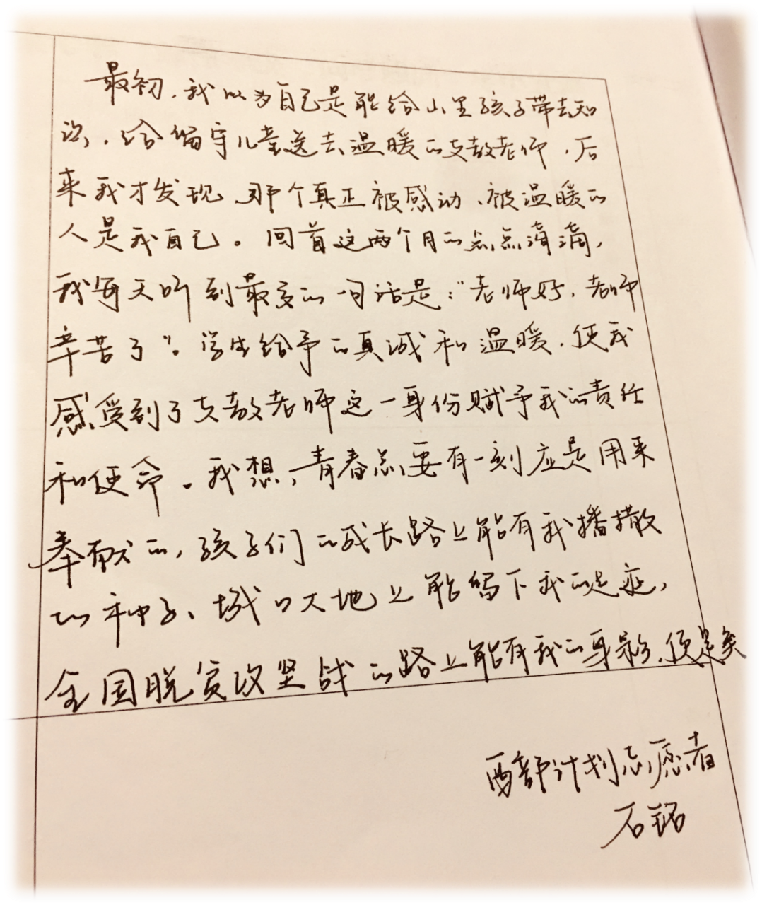 最初,我以为自己是能给山里孩子带去知
识,给留守儿童送去温暖的支教老师,后
来我才发现,那个真正被感动、被温暖的
人是我自己。回首这两个月的点点滴滴,
我每天听到最多的一句话是:“老师好,老师
辛苦了”。学生给予的真诚和温暖,使我
感受到了支教老师这一身份赋予我的责任
和使命。我想,青春总要有一刻应是用来
奉献的,孩子们的成长路上能有我播撒
的种子、城口大地上能留下我的足迹,
全国脱贫攻坚战的路上能有我的身影,便是美
西部计划志愿者
石铭